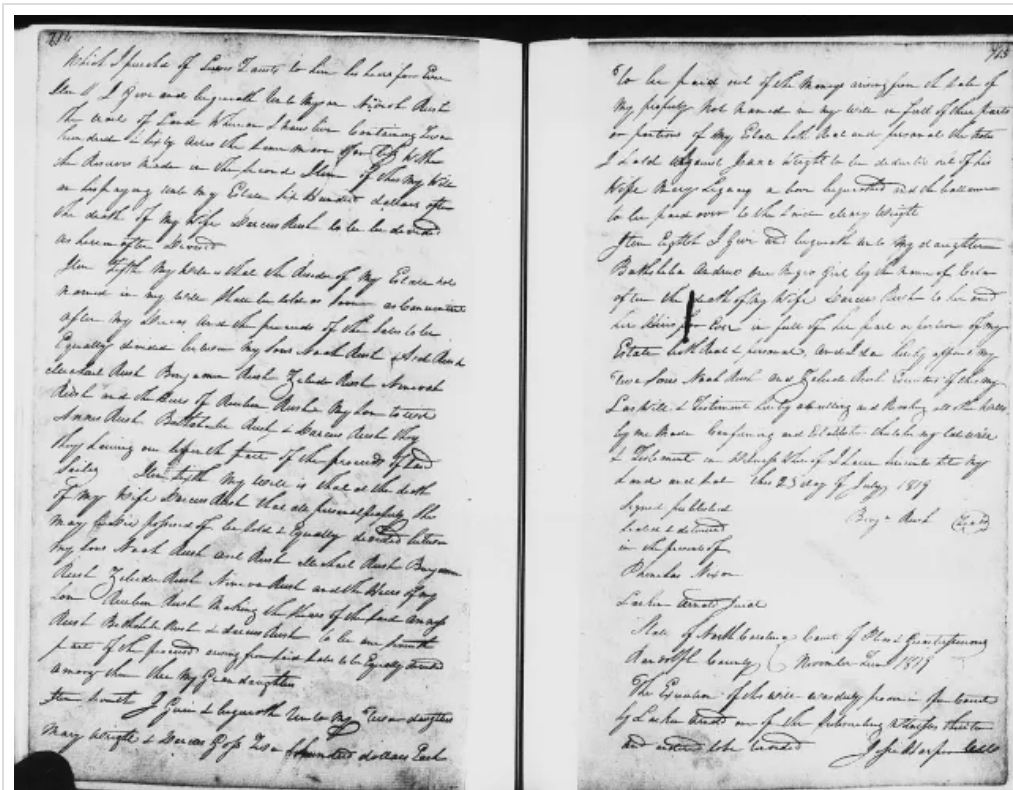 714
Which I purchd of Lewis to him his heirs for Ever
Item I Give and bequeath unto My son Nineveh Rush
The tract of Land Whereon I now live Containing Two
hundred & sixty acres the Same more or less With
the Reserves Made in the second Item of this My Will
on his paying unto My Estate Six Hundred dollars after
the death of My Wife Darcus Rush to be devided
as herein after
Item fifth My Will is that the Residue of My Estate not
named in my Will Shall be Sold as Soon as Convenient
after My and the proceeds of the Sales to be
Equally divided between My Sons Noah Rush Rush
Michael Rush Benjamin Rush Zebedee Rush Nineveh
Rush and the Heirs of Reuben Rush My Son to wit
Rush Bathsheba Rush & Darcus Rush they
they having one part of the proceeds of said
Sailes Item Sixth My Will is that at the death
of my Wife Darcus Rush that all personal property She
may be possesd of be Sold & Equally devided between
my Sons Noah Rush Rush Michael Rush Benjamin
Rush Zebedee Rush Nineveh Rush and the Heirs of my
Son Reuben Rush Making the Shares of the said
Rush Bathsheba Rush & Darcus Rush to be one
part of the proceeds arising from said Sales to be Equally devided
among them three My Grandaughters
Item I Give & bequeath Unto My Two daughters
Mary Wright & Darcus Two hundred dollars Each
715
to be paid out of the Moneys arising from the Sale of
My property Not Named in my Will in full of their parts
or portions of My Estate both Real and personal the Note
I hold against Wright to be deducted out of his
Wife Mary Legacy above bequeathed and the ballance
to be paid over to the Said Mary Wright
Item Eighth I Give and bequeath unto My daughter
Bathsheba Andrus one Negro Girl by the name of
after the death of My Wife Darcus Rush to her and
her Heirs for Ever in full of her part or portion of my
Estate both Real & personal, And I do hereby appoint my
Two Sons Noah Rush and Zebedee Rush Executors of this my
Last Will & Testiment hereby and Revoking all other Wills
by me Made Confirming and this to be my last will
& Testament in Witness Whereof I have hereunto set My
hand and Seal this 25 day of July 1819
Signed published Benjn Rush (Seal)
sealed & delivered
in the presents of
Phinehas Nixon
Larkin Arnold Jurat
State of North Carolina Court of Pleas & Quarter Sessions
Randolph County November Term 1819
The Execution of this will was duly proven in Open Court
by Larkin Arnold one of the Subscribing Witnesses thereto
and ordered to be recorded Jesse Harper